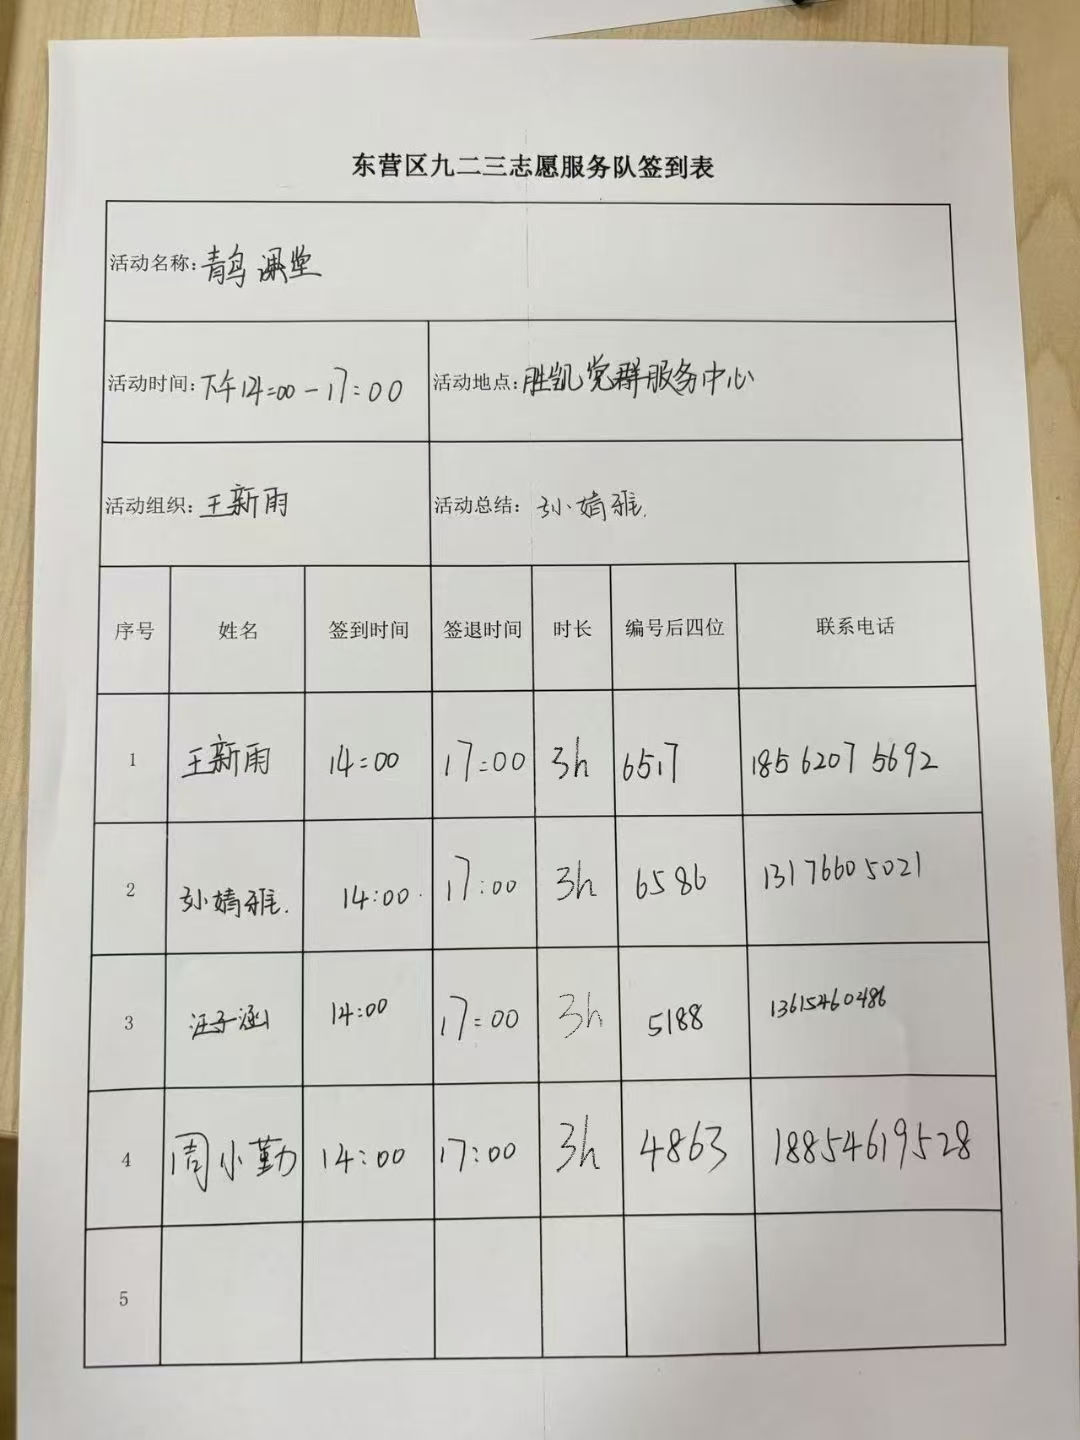 东营区九二三志愿服务队签到表
活动名称:青鸟课堂
活动时间:下午14:00-17:00 活动地点:胜凯党群服务中心
活动组织:王新雨 活动总结:孙婧雅.
序号 姓名 签到时间 签退时间 时长 编号后四位 联系电话
1 王新雨 14:00 17:00 3h 6517 18562075692
2 孙婧雅. 14:00. 17:00 3h 6586 13176605021
3 汪子涵 14:00 17:00 3h 5188 13615460486
4 周小勤 14:00 17:00 3h 4863 18854619528
5